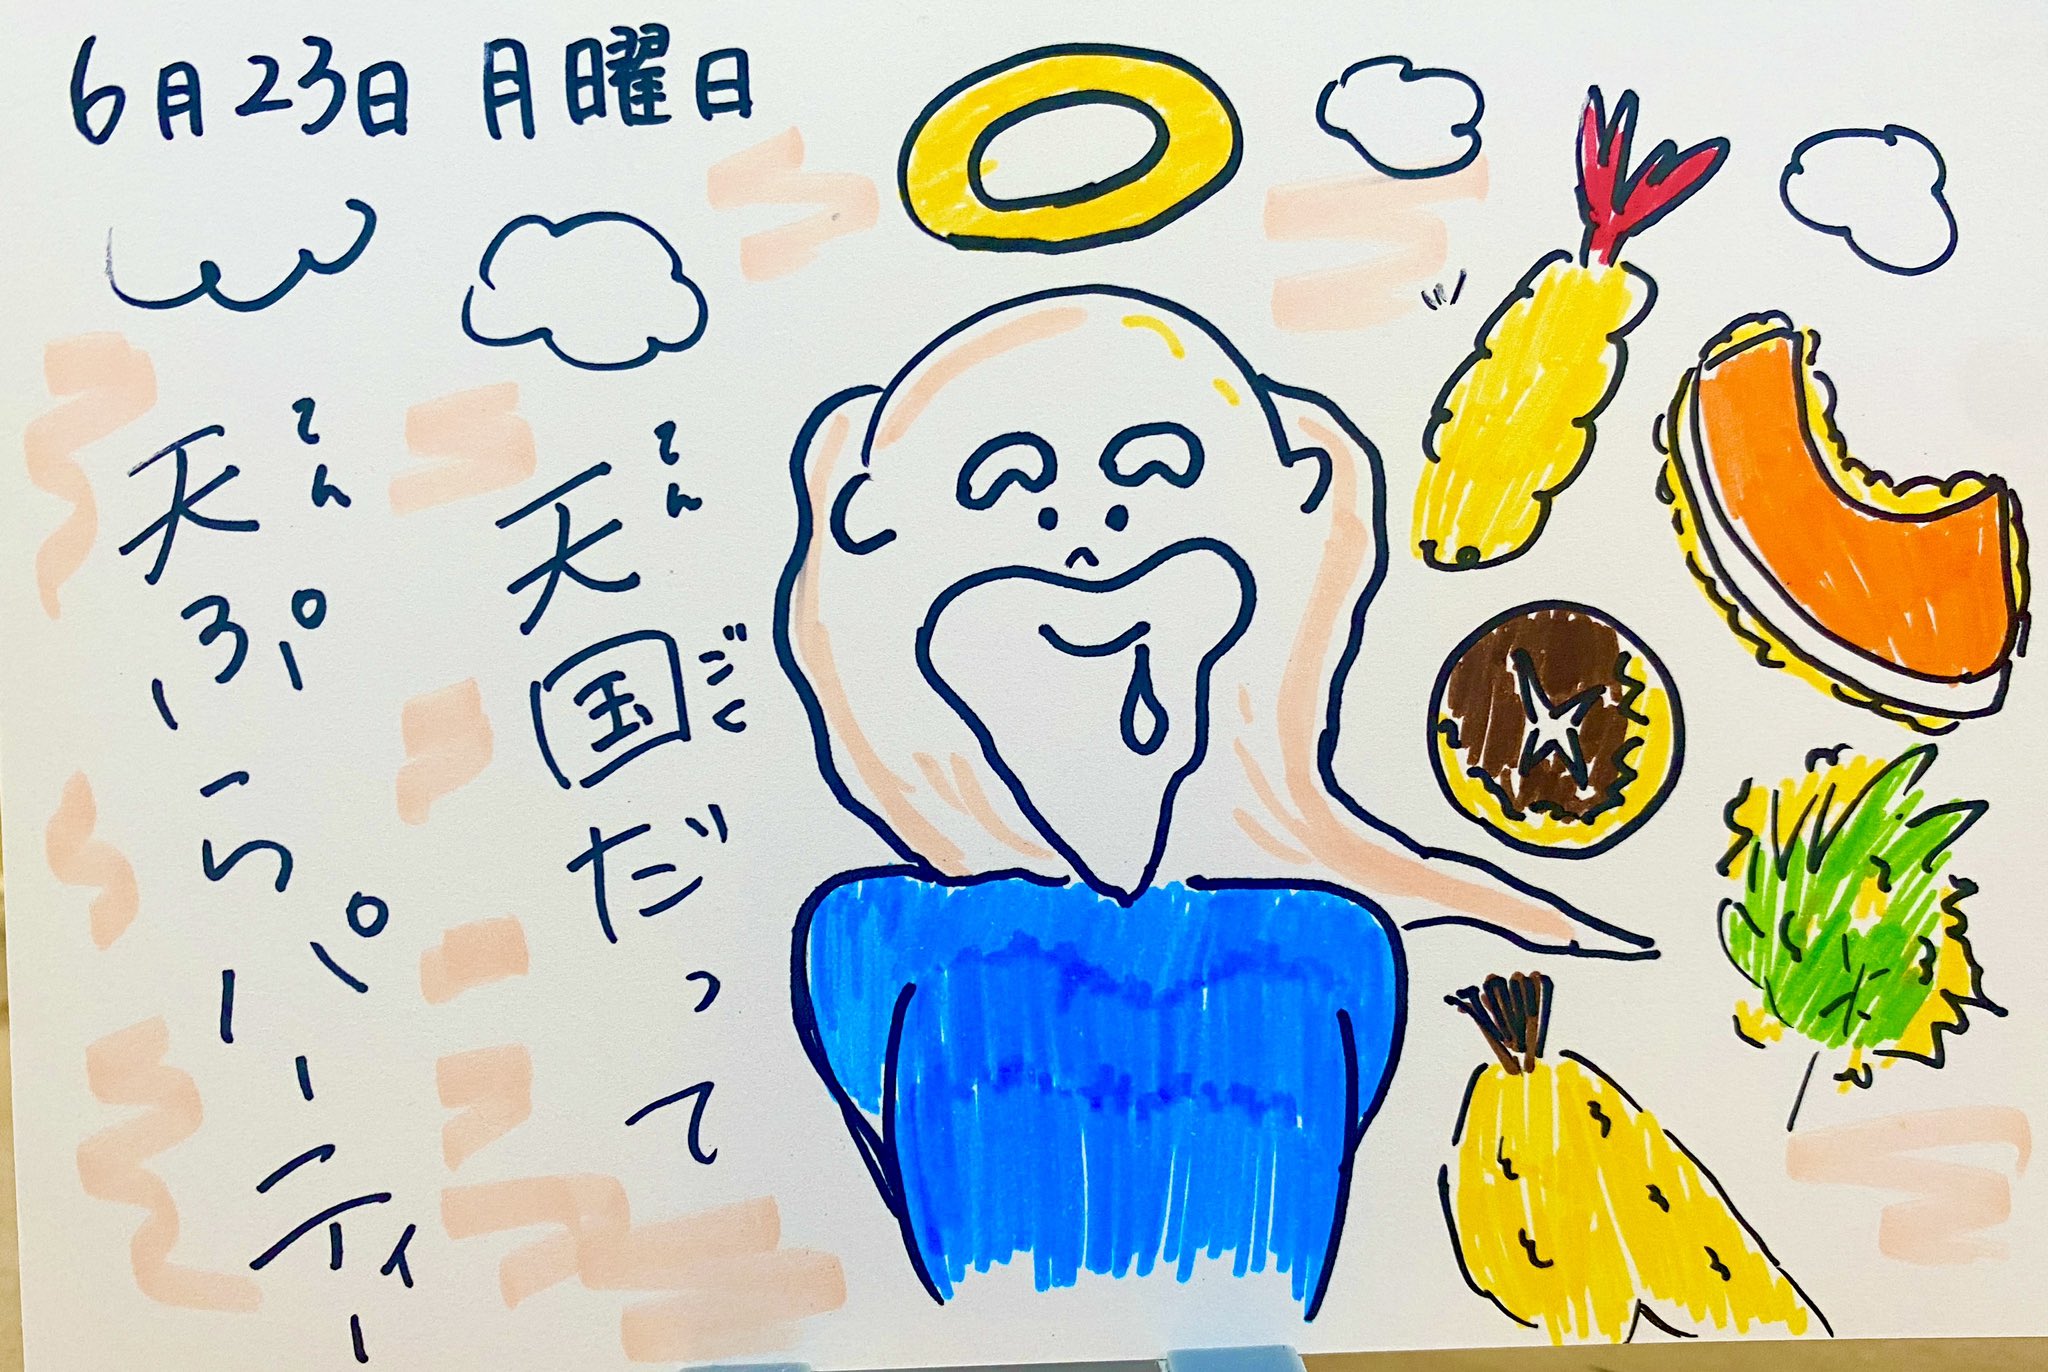 6月23日 月曜日
天国だって
てん ごく
天ぷらパーティー
てん